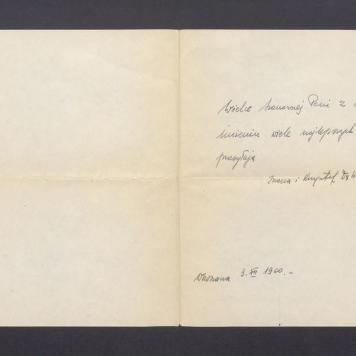 Wielce Szanownej Pani z
imienin wiele najlepszych
przesyłają
Iwona i Krzysztof
Warszawa 3. XII 1960.-